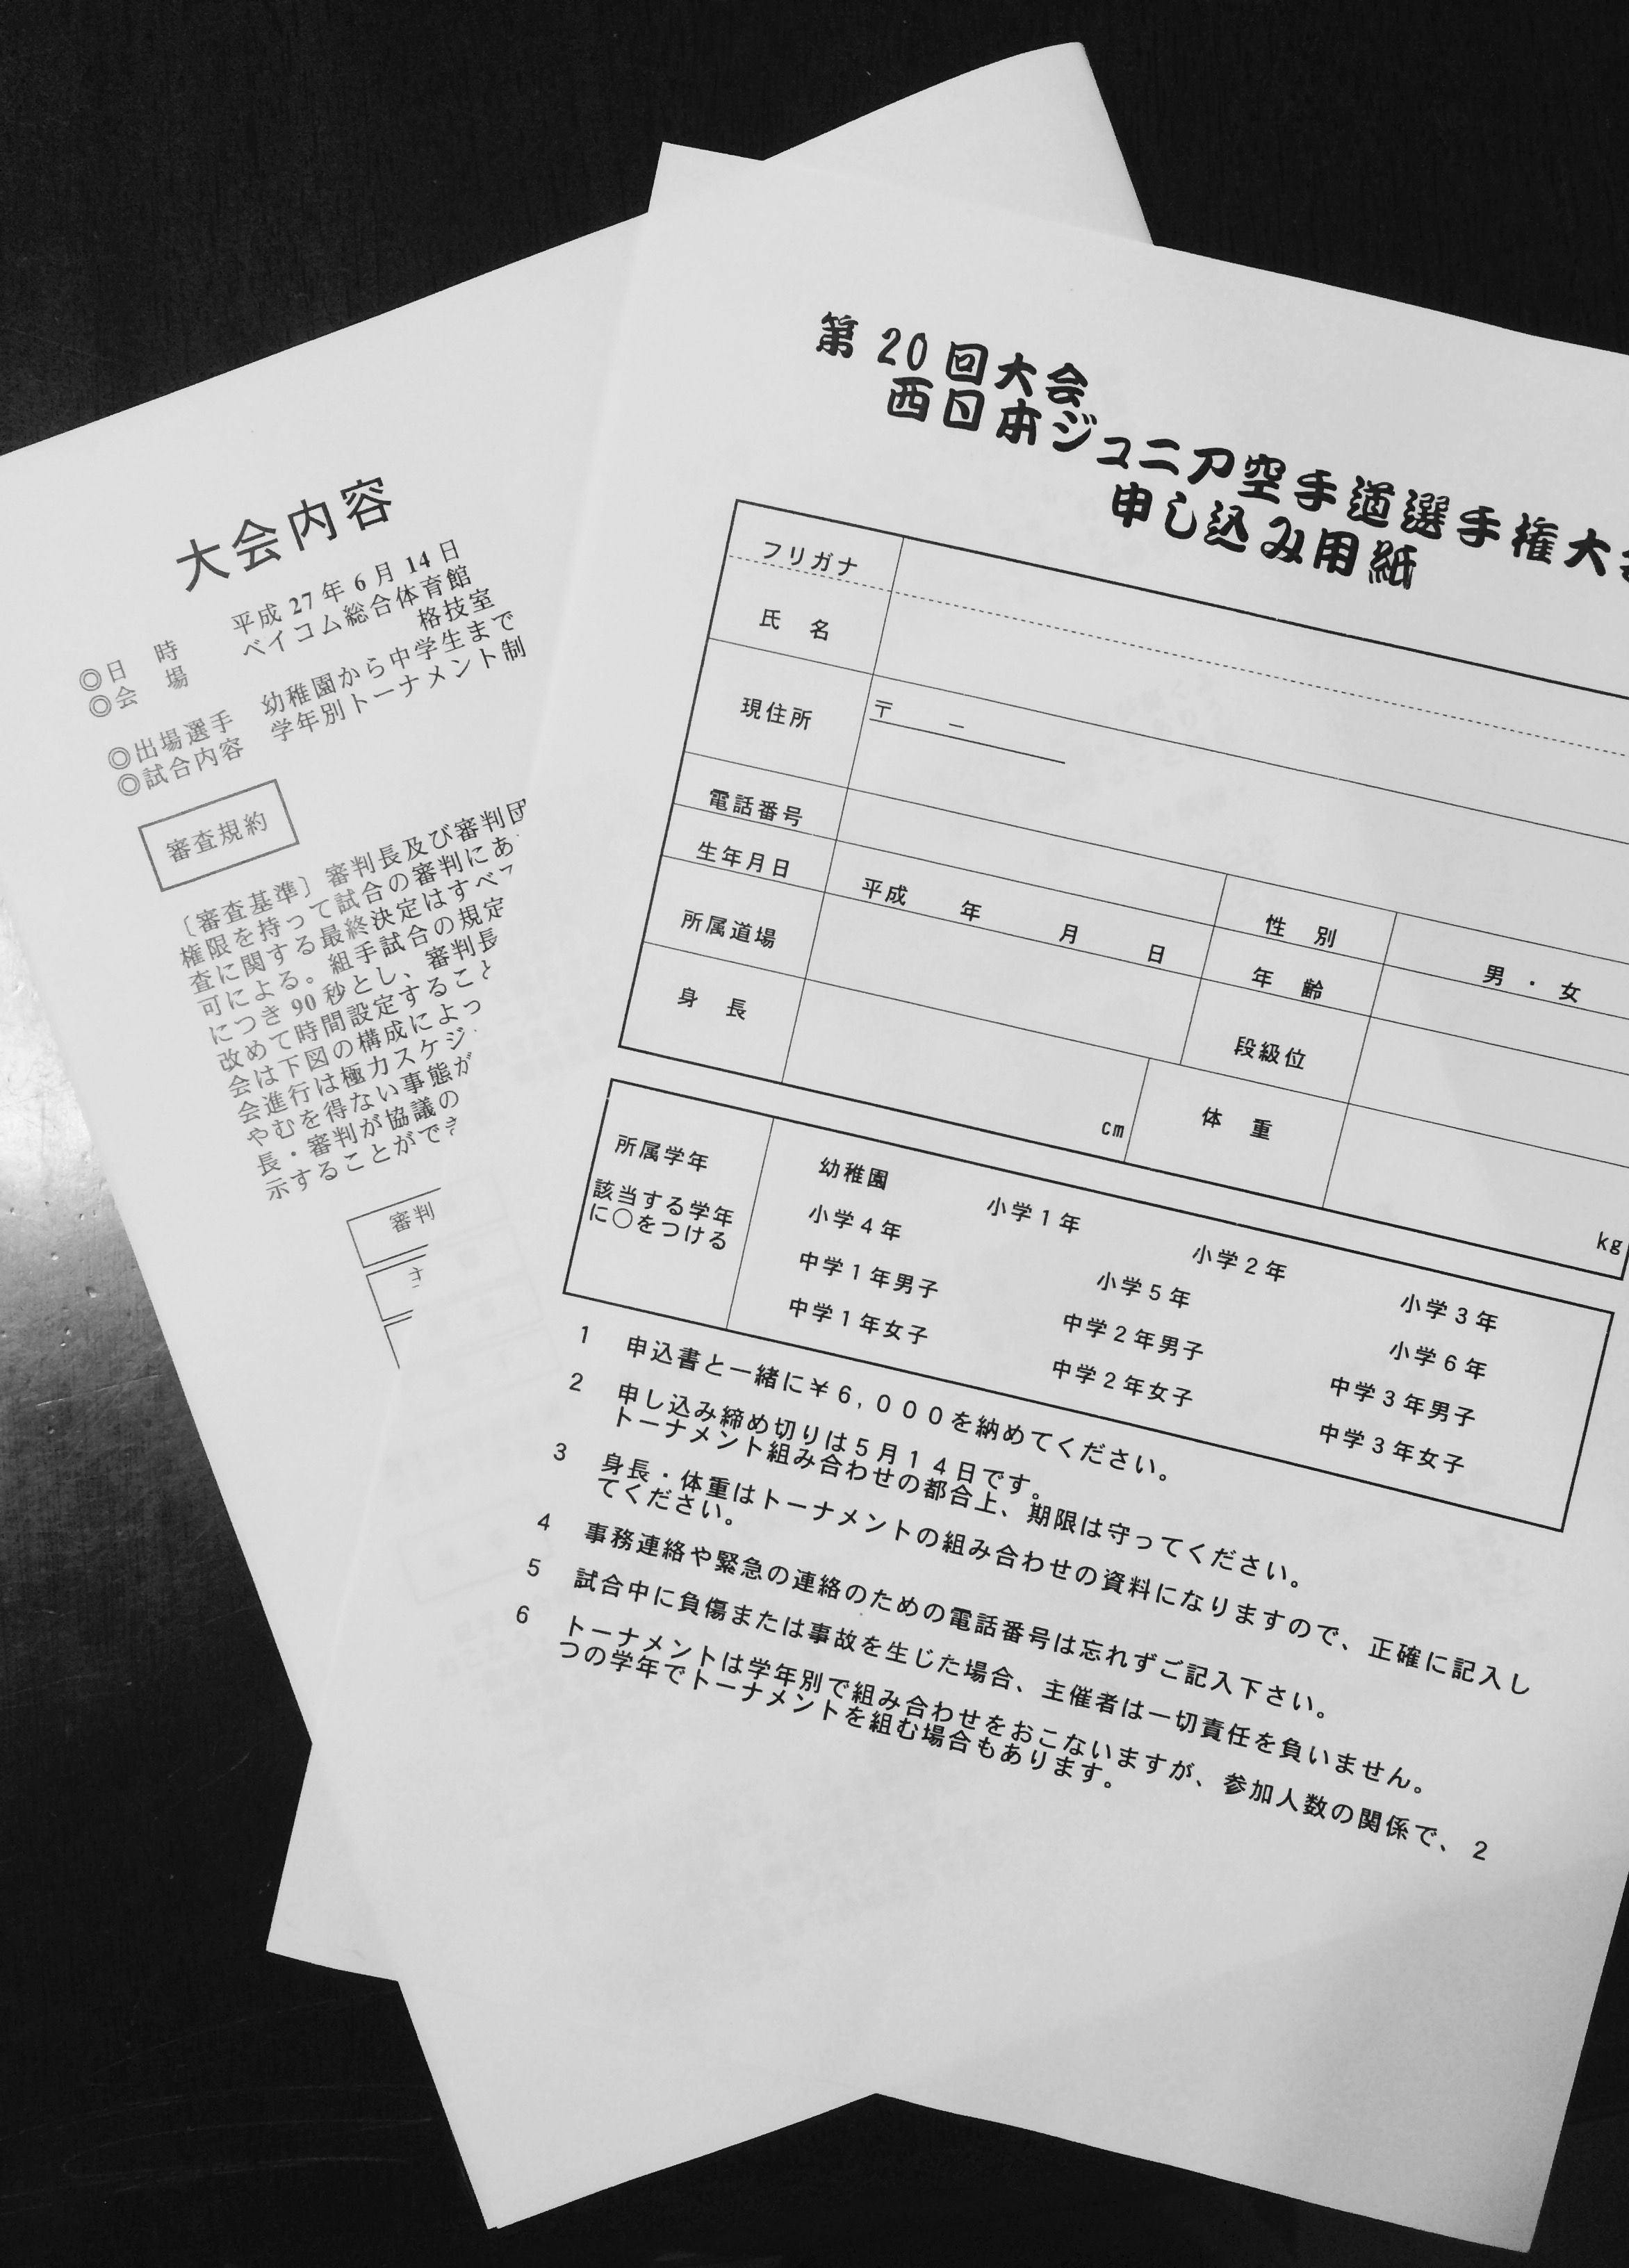 大会内容
◎日 時 平成 27 年 6 月 14 日
◎会 場 ベイコム総合体育館
格技室
◎出場選手 幼稚園から中学生まで
◎試合内容 学年別トーナメント制
審査規約
〔審査基準〕審判長及び審判団
権限を持って試合の審判にあ
査に関する最終決定はすべ
可による。組手試合の規定
につき 90 秒とし、審判長
改めて時間設定すること
会は下図の構成によっ
会進行は極力スケジ
やむを得ない事態が
長・審判が協議の
示することができ
審判
第 20 回大会
西日本ジュニア空手道選手権大会
申し込み用紙
フリガナ
氏 名
現住所 〒 －
電話番号
生年月日 平成 年 月 日 性 別 男 ・ 女
所属道場 年 齢
段級位
身 長 cm 体 重 kg
所属学年
該当する学年
に○をつける
幼稚園 小学１年 小学２年 小学３年
小学４年 小学５年 小学６年
中学１年男子 中学２年男子 中学３年男子
中学１年女子 中学２年女子 中学３年女子
1 申込書と一緒に￥６,０００を納めてください。
2 申し込み締め切りは５月１４日です。
トーナメント組み合わせの都合上、期限は守ってください。
3 身長・体重はトーナメントの組み合わせの資料になりますので、正確に記入し
てください。
4 事務連絡や緊急の連絡のための電話番号は忘れずご記入下さい。
5 試合中に負傷または事故を生じた場合、主催者は一切責任を負いません。
6 トーナメントは学年別で組み合わせをおこないますが、参加人数の関係で、２
つの学年でトーナメントを組む場合もあります。